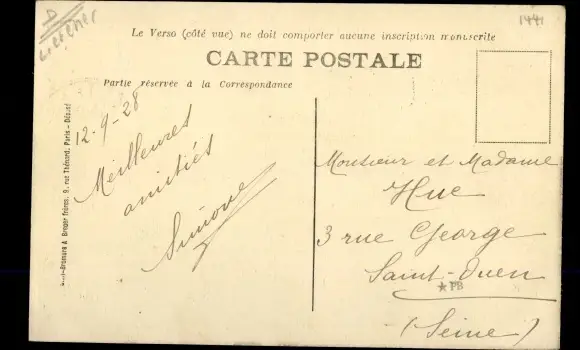 1441
Le Verso (côté vue) ne doit comporter aucune inscription manuscrite
CARTE POSTALE
Partie réservée à la Correspondance
12-9-28
Meilleures
amitiés
Simone
Monsieur et Madame
Hue
3 rue George
Saint-Ouen
★PB
(Seine)
A Breger frères, 9, rue Thénard, Paris - Déposé